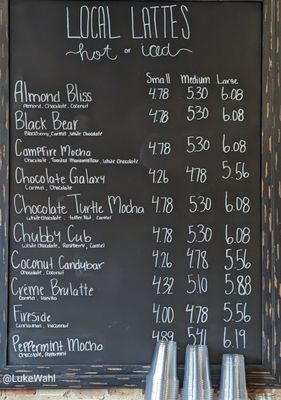 LOCAL LATTES
hot or iced
Small Medium Large
Almond Bliss 4.78 5.30 6.08
Almond, Chocolate, Coconut
Black Bear 4.78 5.30 6.08
Blackberry, Carmel, White Chocolate
Campfire Mocha 4.78 5.30 6.08
Chocolate, Toasted Marshmallow, White Chocolate
Chocolate Galaxy 4.26 4.78 5.56
Carmel, Chocolate
Chocolate Turtle Mocha 4.78 5.30 6.08
White Chocolate, Toffee Nut, Carmel
Chubby Cub 4.78 5.30 6.08
White Chocolate, Raspberry, Carmel
Coconut Candybar 4.26 4.78 5.56
Chocolate, Coconut
Crème Brulatte 4.32 5.10 5.88
Carmel, Vanilla
Fireside 4.00 4.78 5.56
Cinnamon, Hazelnut
Peppermint Mocha 4.89 5.41 6.19
Chocolate, Peppermint
@LukeWahl